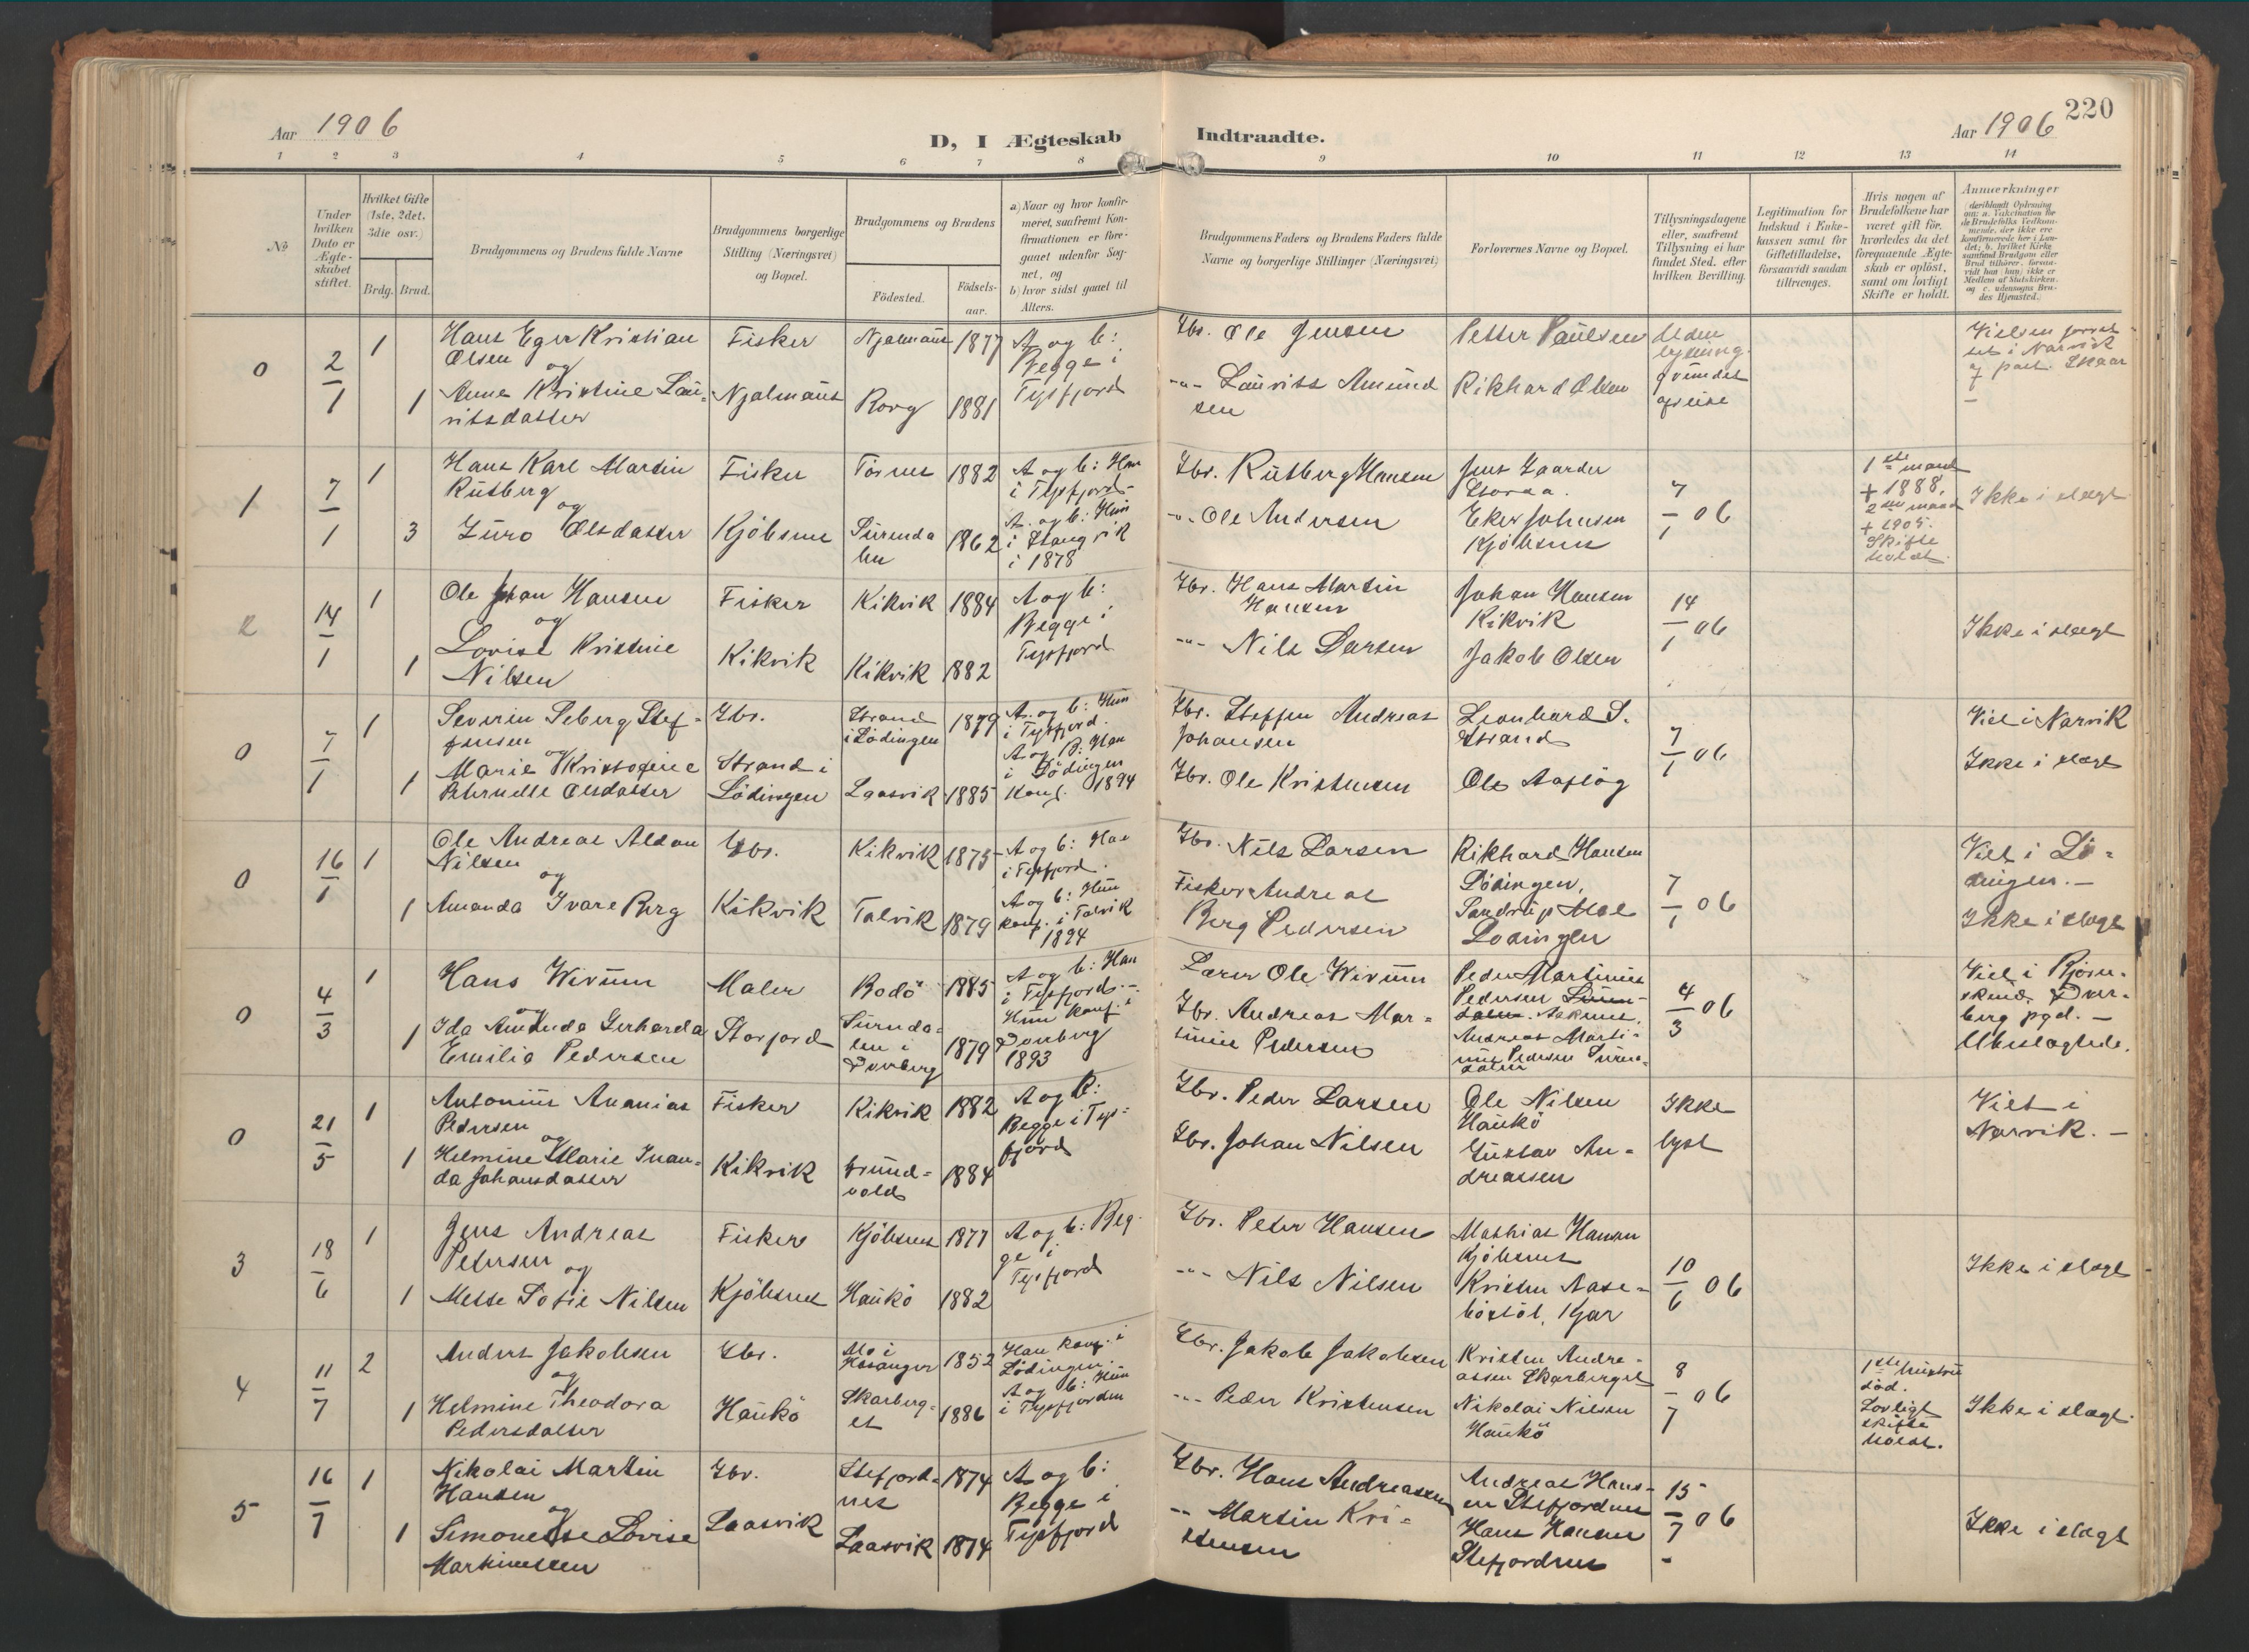 Aar 1906
D, I Ægteskab Indtraadte.
Aar 1906
220
1 2 3 4 5 6 7 8 9 10 11 12 13 14
No
Under hvilken Dato er Ægteskabet stiftet.
Hvilket Gifte (1ste, 2det, 3die osv.)
Brdg. Brud.
Brudgommens og Brudens fulde Navne
Brudgommens borgerlige Stilling (Næringsvei) og Bopæl.
Brudgommens og Brudens
Födested.
Födselsaar.
a) Naar og hvor konfirmeret, saafremt Konfirmationen er foregaaet udenfor Sognet, og
b) hvor sidst gaaet til Alters.
Brudgommens Faders og Brudens Faders fulde Navne og borgerlige Stillinger (Næringsvei)
Forlovernes Navne og Bopæl.
Tillysningsdagene eller, saafremt Tillysning ei har fundet Sted, efter hvilken Bevilling.
Legitimation for Indskud i Enkekassen samt for Giftetilladelse, forsaavidt saadan tiltrænges.
Hvis nogen af Brudefolkene har været gift för, hvorledes da det foregaaende Ægteskab er oplöst, samt om lovligt Skifte er holdt.
Anmærkninger
0
2/1
1
Hans Eger Kristian
Olsen
og
1
Anne Kristine Lau-
ritsdatter
Fisker
Njalmaus
1877
Korg
1881
A og b:
Begge i
Tysfjord
Gbr. Ole Jensen
-"- Laurits Amund
sen
Petter Paulsen
Rikhard Olsen
Uden
lysning
grundet
afreise
i Narvik
1
7/1
1
Hans Karl Martin
Rutberg
og
3
Guro Olsdatter
Fisker
Kjöbsnes
1882
Surenda
len
1862
A og b: Han
i Tysfjord
A. og b: Hun
i Stangvik
i 1878
Gbr. Rutberg Hansen
-"- Ole Andersen
Storaa.
Eker Johnsen
Kjöbsnes
7/1 06
1ste mand
+ 1888,
2den mand
+ 1905.
Skifte
holdt.
Ikke i slægt
2
14/1
1
Ole Johan Hansen
og
1
Lovise Kristine
Nilsen
Fisker
Kikvik
Kikvik
1884
Kikvik
1882
A og b:
Begge i
Tysfjord
Gbr. Hans Martin
Hansen
-"- Nils Larsen
Johan Hansen
Kikvik
Jakob Olsen
14/1 06
Ikke i slægt
0
7/1
1
Severin Seberg Stef-
fensen
og
1
Marie Kristofine
Petrnelle Olsdatter
Gbr.
Strand i
Lödingen
Strand
i Lödingen
1879
Laasvik
1885
A. og b: Hun
i Tysfjord.
A og B: Han
i Lödingen
Konf. 1894
Gbr. Steffen Andreas
Johansen
Gbr. Ole Kristensen
Leonhard S.
Strand
7/1 06
Viet i Narvik
Ikke i slægt
0
16/1
1
Ole Andreas Aldon
Nilsen
og
1
Amanda Ivare Berg
Gbr.
Kikvik
Kikvik
1875
Talvik
1879
A og b: Han
i Tysfjord.
A og b: Hun
konf. i Talvik
1894
Gbr. Nils Larsen
Fisker Andreas
Berg Pedersen
Rikhard Hansen
Lödingen,
Lödingen
7/1 06
Viet i Lö-
dingen. —
Ikke i slægt
0
4/3
1
Hans Wivum
og
1
Ida Amanda Gerharda
Emilie Pedersen
Maler
Storjord
Bodö
1885
Surnda-
len i
Dverberg
1879
A og b: Han
i Tysfjord. —
Hun konf. i
Dverberg
1893
Lærer Ole Wivum
Gbr. Andreas Mar-
tinus Pedersen
Peder Martinus
Pedersen
Andreas Marti-
nus Pedersen Suren-
dalen
4/3 06
Viet i Björn-
skind, Dver-
berg pgd. —
Ubeslægtede.
0
21/5
1
Antonius Ananias
Pedersen
og
1
Helmine Marie Inan-
da Johansdatter
Fisker
Kikvik
Kikvik
1882
Grund-
vold
1884
A og B:
Begge i Tys-
fjord
Gbr. Peder Larsen
Gbr. Johan Nilsen
Ole Nilsen
Haukö
Gustav An-
dreassen
Ikke
lyst
Viet i
Narvik. —
3
18/6
1
Jens Andreas
Petersen
og
1
Mette Sofie Nilsen
Fisker
Kjöbsnes
Kjöbsnes
1877
Haukö
1882
A og b: Beg-
ge i
Tysfjord
Gbr. Peter Hansen
-"- Nils Nilsen
Mathias Hansen
Kjöbsnes
Kristen Aase-
böstöl, Kjær
10/6 06
Ikke i slægt
4
11/7
2
Anders Jakobsen
og
1
Helmine Theodora
Pedersdatter
Gbr.
Haukö
Mo i
1852
Skarberg-
et
1886
Han konf. i
Lödingen.
A og b: Hun
i Tysfjorden
Gbr. Jakob Jakobsen
-"- Peder Kristensen
Kristen Andre-
assen Skarberget
Nikolai Nilsen
Haukö
8/7 06
1ste hustru
död.
Lovligt
skifte
holdt.
Ikke i slægt.
5
16/7
1
Nikolai Martin
Hansen
og
1
Simonette Lovise
Martinussen
Gbr.
Laasvik
Stefjord-
nes
1874
Laasvik
1874
A og b:
Begge i
Tysfjord
Gbr. Hans Andreassen
-"- Martin Kri-
stensen
Andreas Hans-
en Stefjordnes
Hans Hansen
Stefjordnes
15/7 06
Ikke i slægt